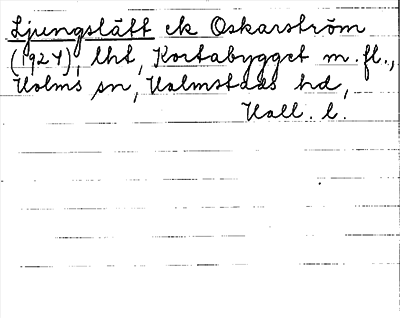 Ljungslätt ek Oskarström
(1924), lht, Kortabygget m.fl.,
Holms sn, Halmstads hd,
Hall. l.